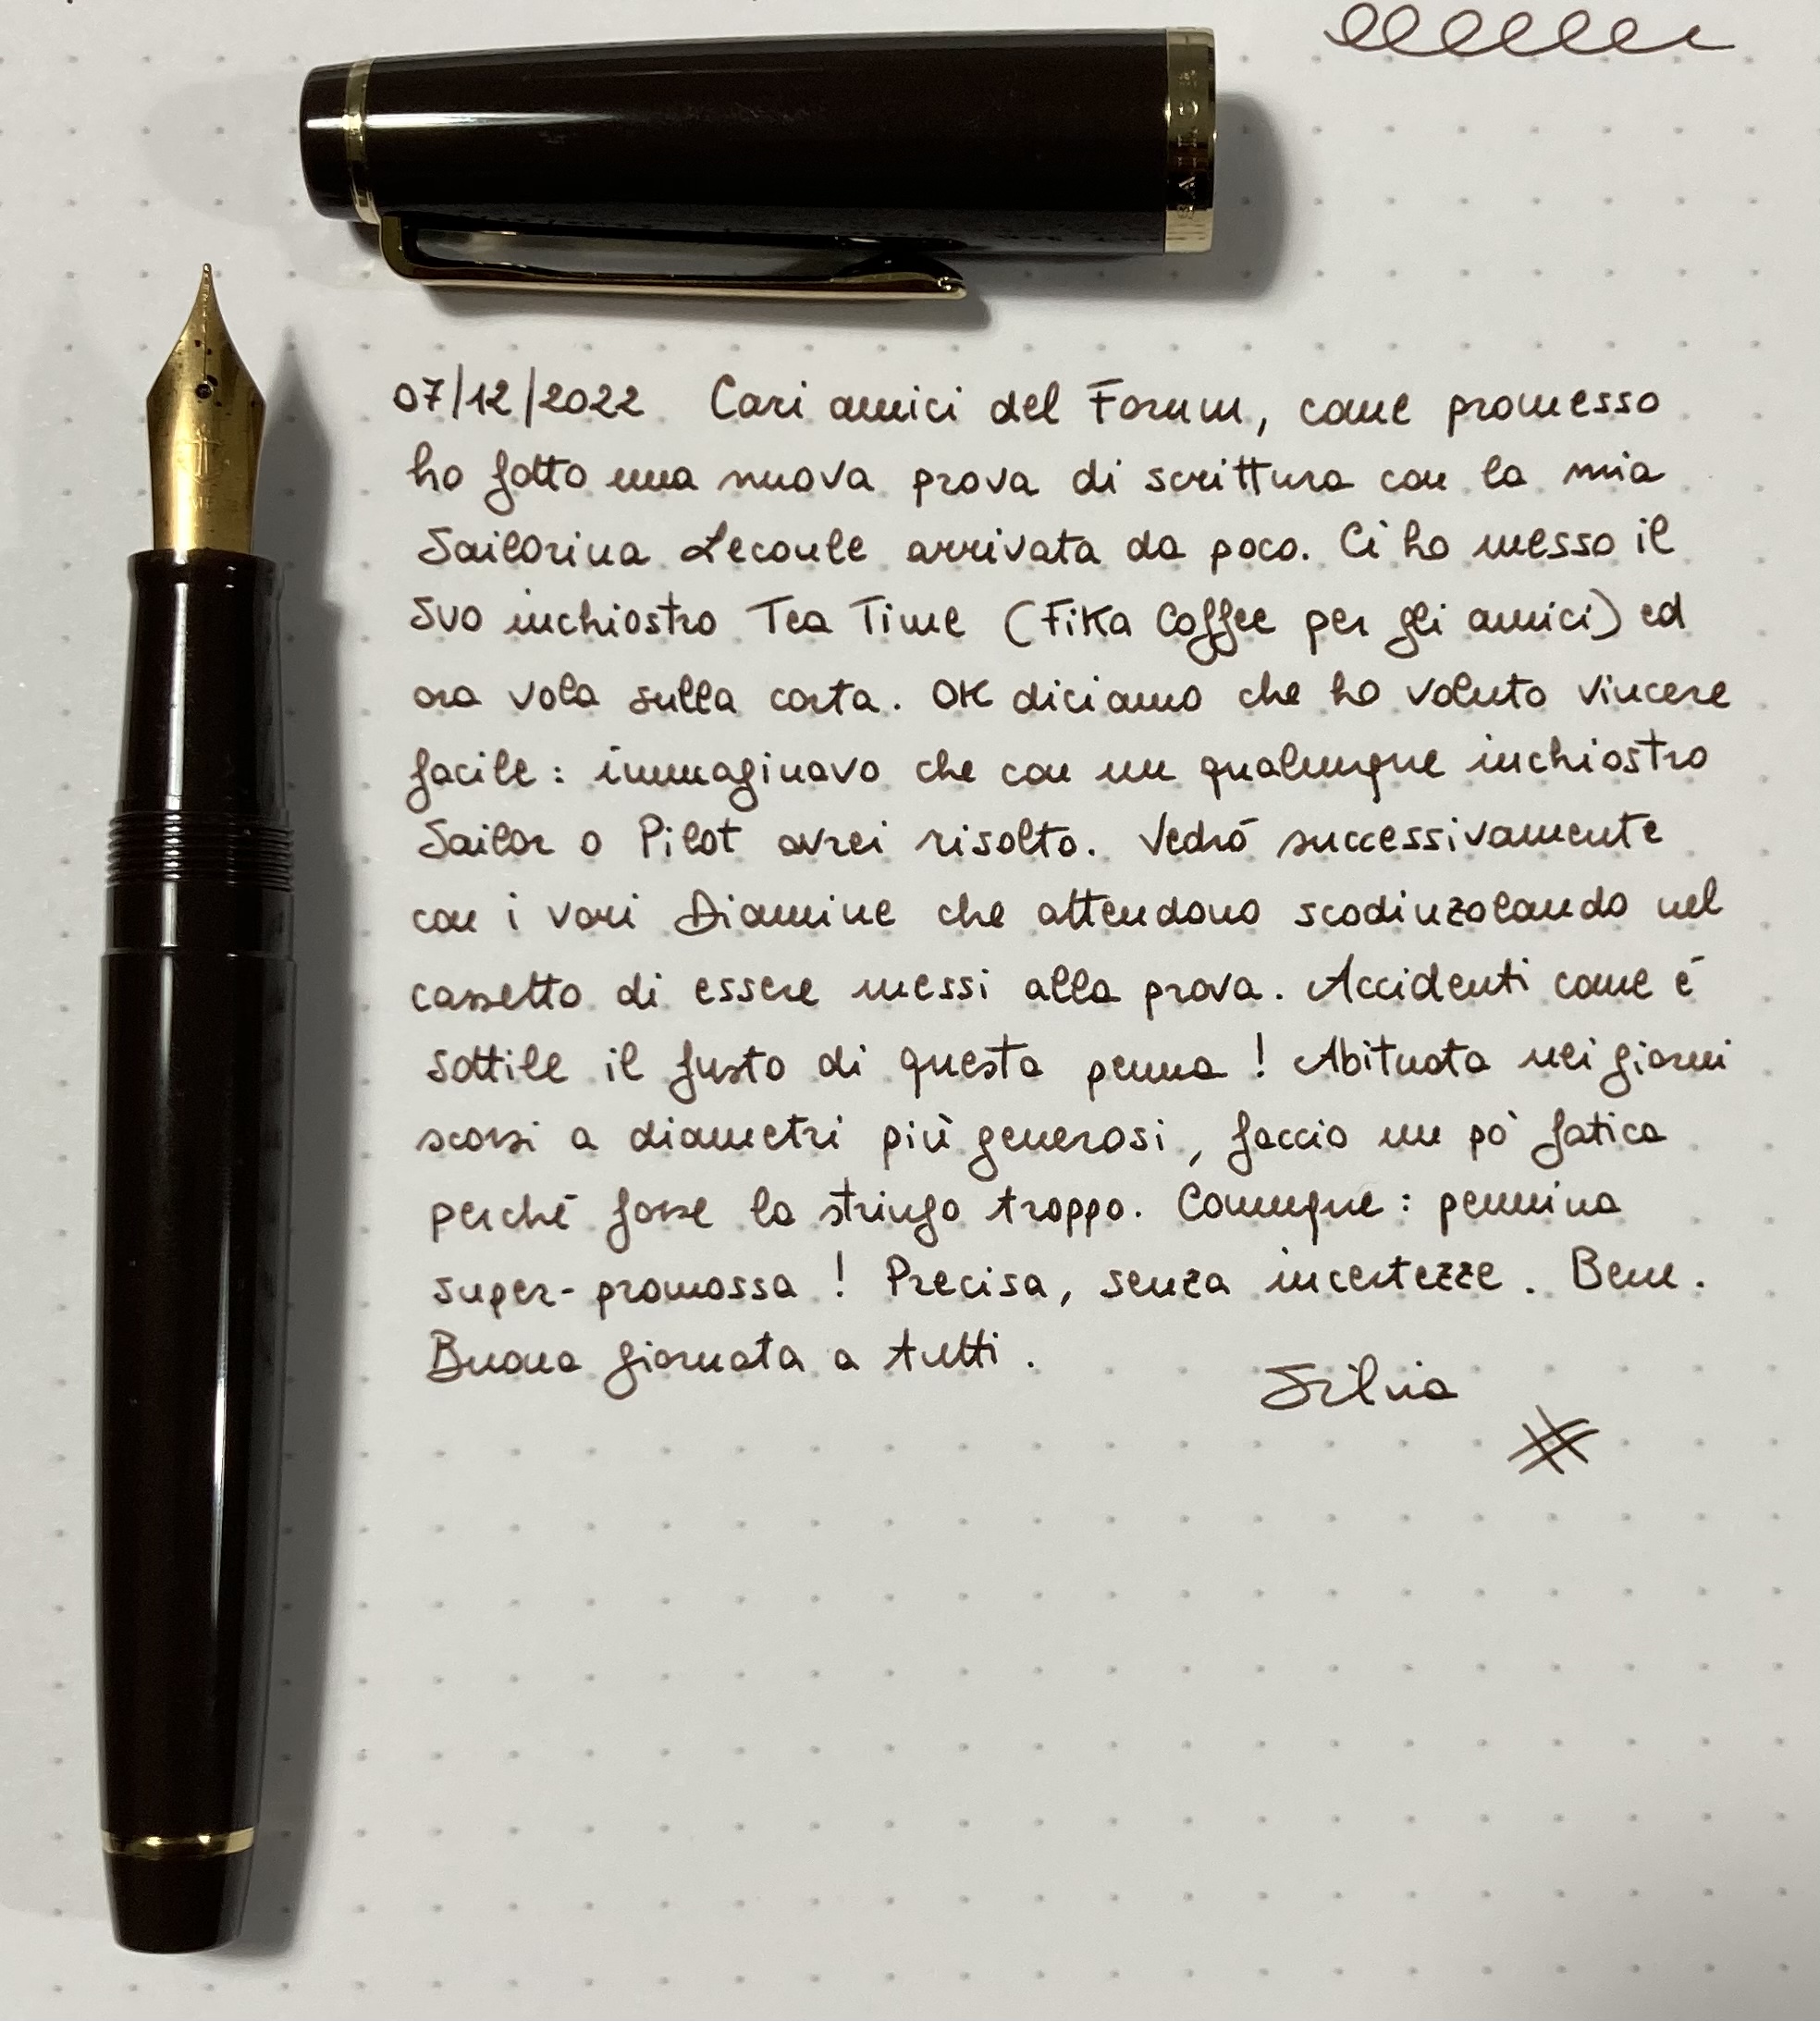 SAILOR
07/12/2022 Cari amici del Forum, come promesso
ho fatto una nuova prova di scrittura con la mia
Sailorina Lecoule arrivata da poco. Ci ho messo il
suo inchiostro Tea Time (Fika Coffee per gli amici) ed
ora vola sulla carta. OK diciamo che ho voluto vincere
facile: immaginavo che con un qualunque inchiostro
Sailor o Pilot avrei risolto. Vedrò successivamente
con i vari Diamine che attendono scodinzolando nel
cassetto di essere messi alla prova. Accidenti come è
sottile il fusto di questa penna! Abituata nei giorni
scorsi a diametri più generosi, faccio un pò fatica
perché forse la stringo troppo. Comunque: pennina
super-promossa! Precisa, senza incertezze. Bene.
Buona giornata a tutti.
Silvia